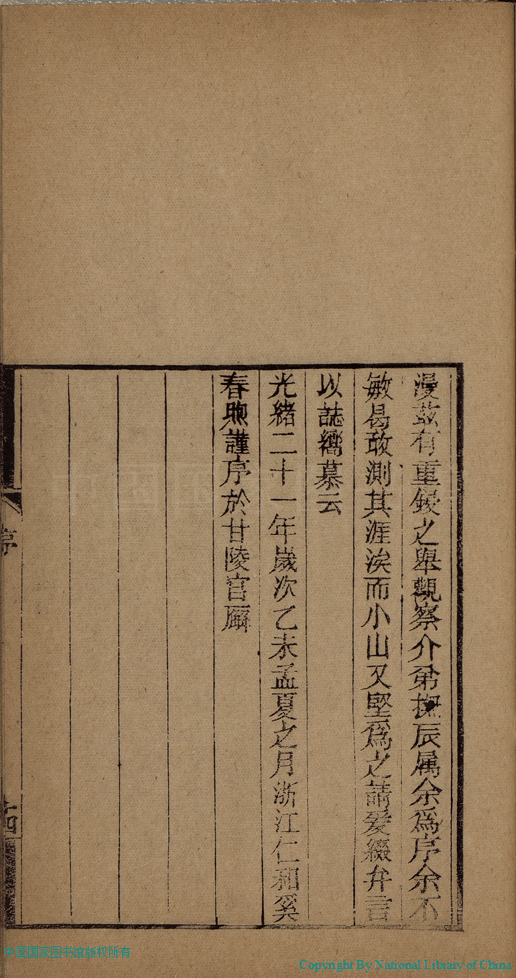 漫茲有重鋟之舉觀察介弟撫辰属余為序余不
敏曷敢測其涯涘而小山又堅為之請爰綴弁言
以誌嚮慕云
光緒二十一年歲次乙未孟夏之月浙江仁和奚
春煦謹序於甘陵官廨
序
十四
中国国家图书馆版权所有
Copyright By National Library of China